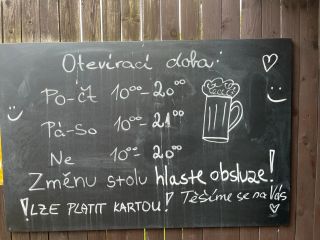 Otevírací doba:
Po-Čt 10⁰⁰-20⁰⁰
Pá-So 10⁰⁰-21⁰⁰
Ne 10⁰⁰-20⁰⁰
Změnu stolu hlaste obsluze!
!LZE PLATIT KARTOU! Těšíme se na Vás